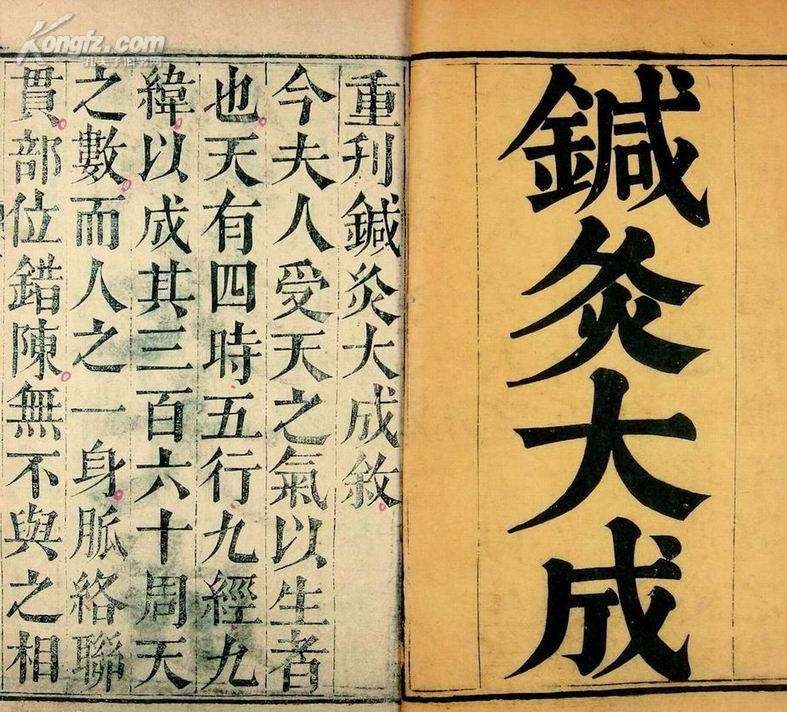 鍼灸大成
重刋鍼灸大成敘
今夫人受天之氣以生者
也天有四時五行九經九
緯以成其三百六十周天
之數而人之一身脈絡聯
貫部位錯陳無不與之相
Kongfz.com
孔夫子旧书网